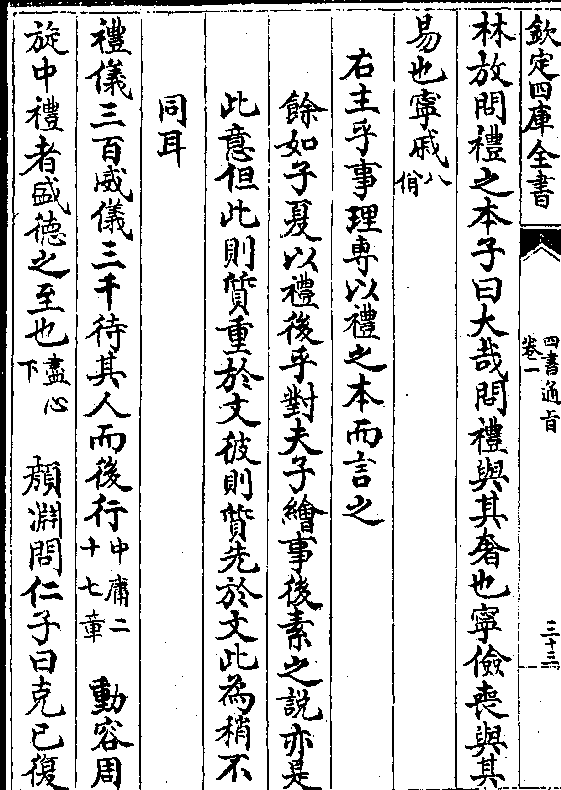 欽定四庫全書
四書通旨
卷一
三十三
林放問禮之本子曰大哉問禮與其奢也寧儉喪與其
易也寧戚八佾
右主乎事理専以禮之本而言之
餘如子夏以禮後乎對夫子繪事後素之説亦是
此意但此則質重於文彼則質先於文此為稍不
同耳
禮儀三百威儀三千待其人而後行中庸二十七章 動容周
旋中禮者盛德之至也盡心下 顔淵問仁子曰克已復